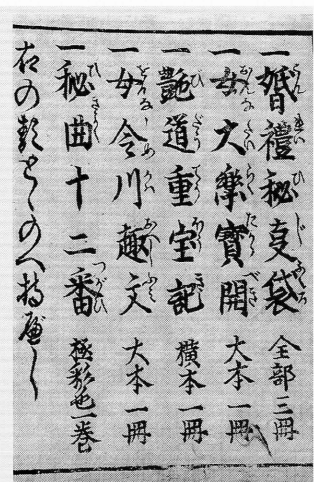 一 婚禮秘叓袋 全部三冊
一 女大樂寶開 大本一冊
一 艶道重宝記 横本一冊
一 女令川趣文 大本一冊
一 秘曲十二番 極彩色一巻
右の類とゝのへ持